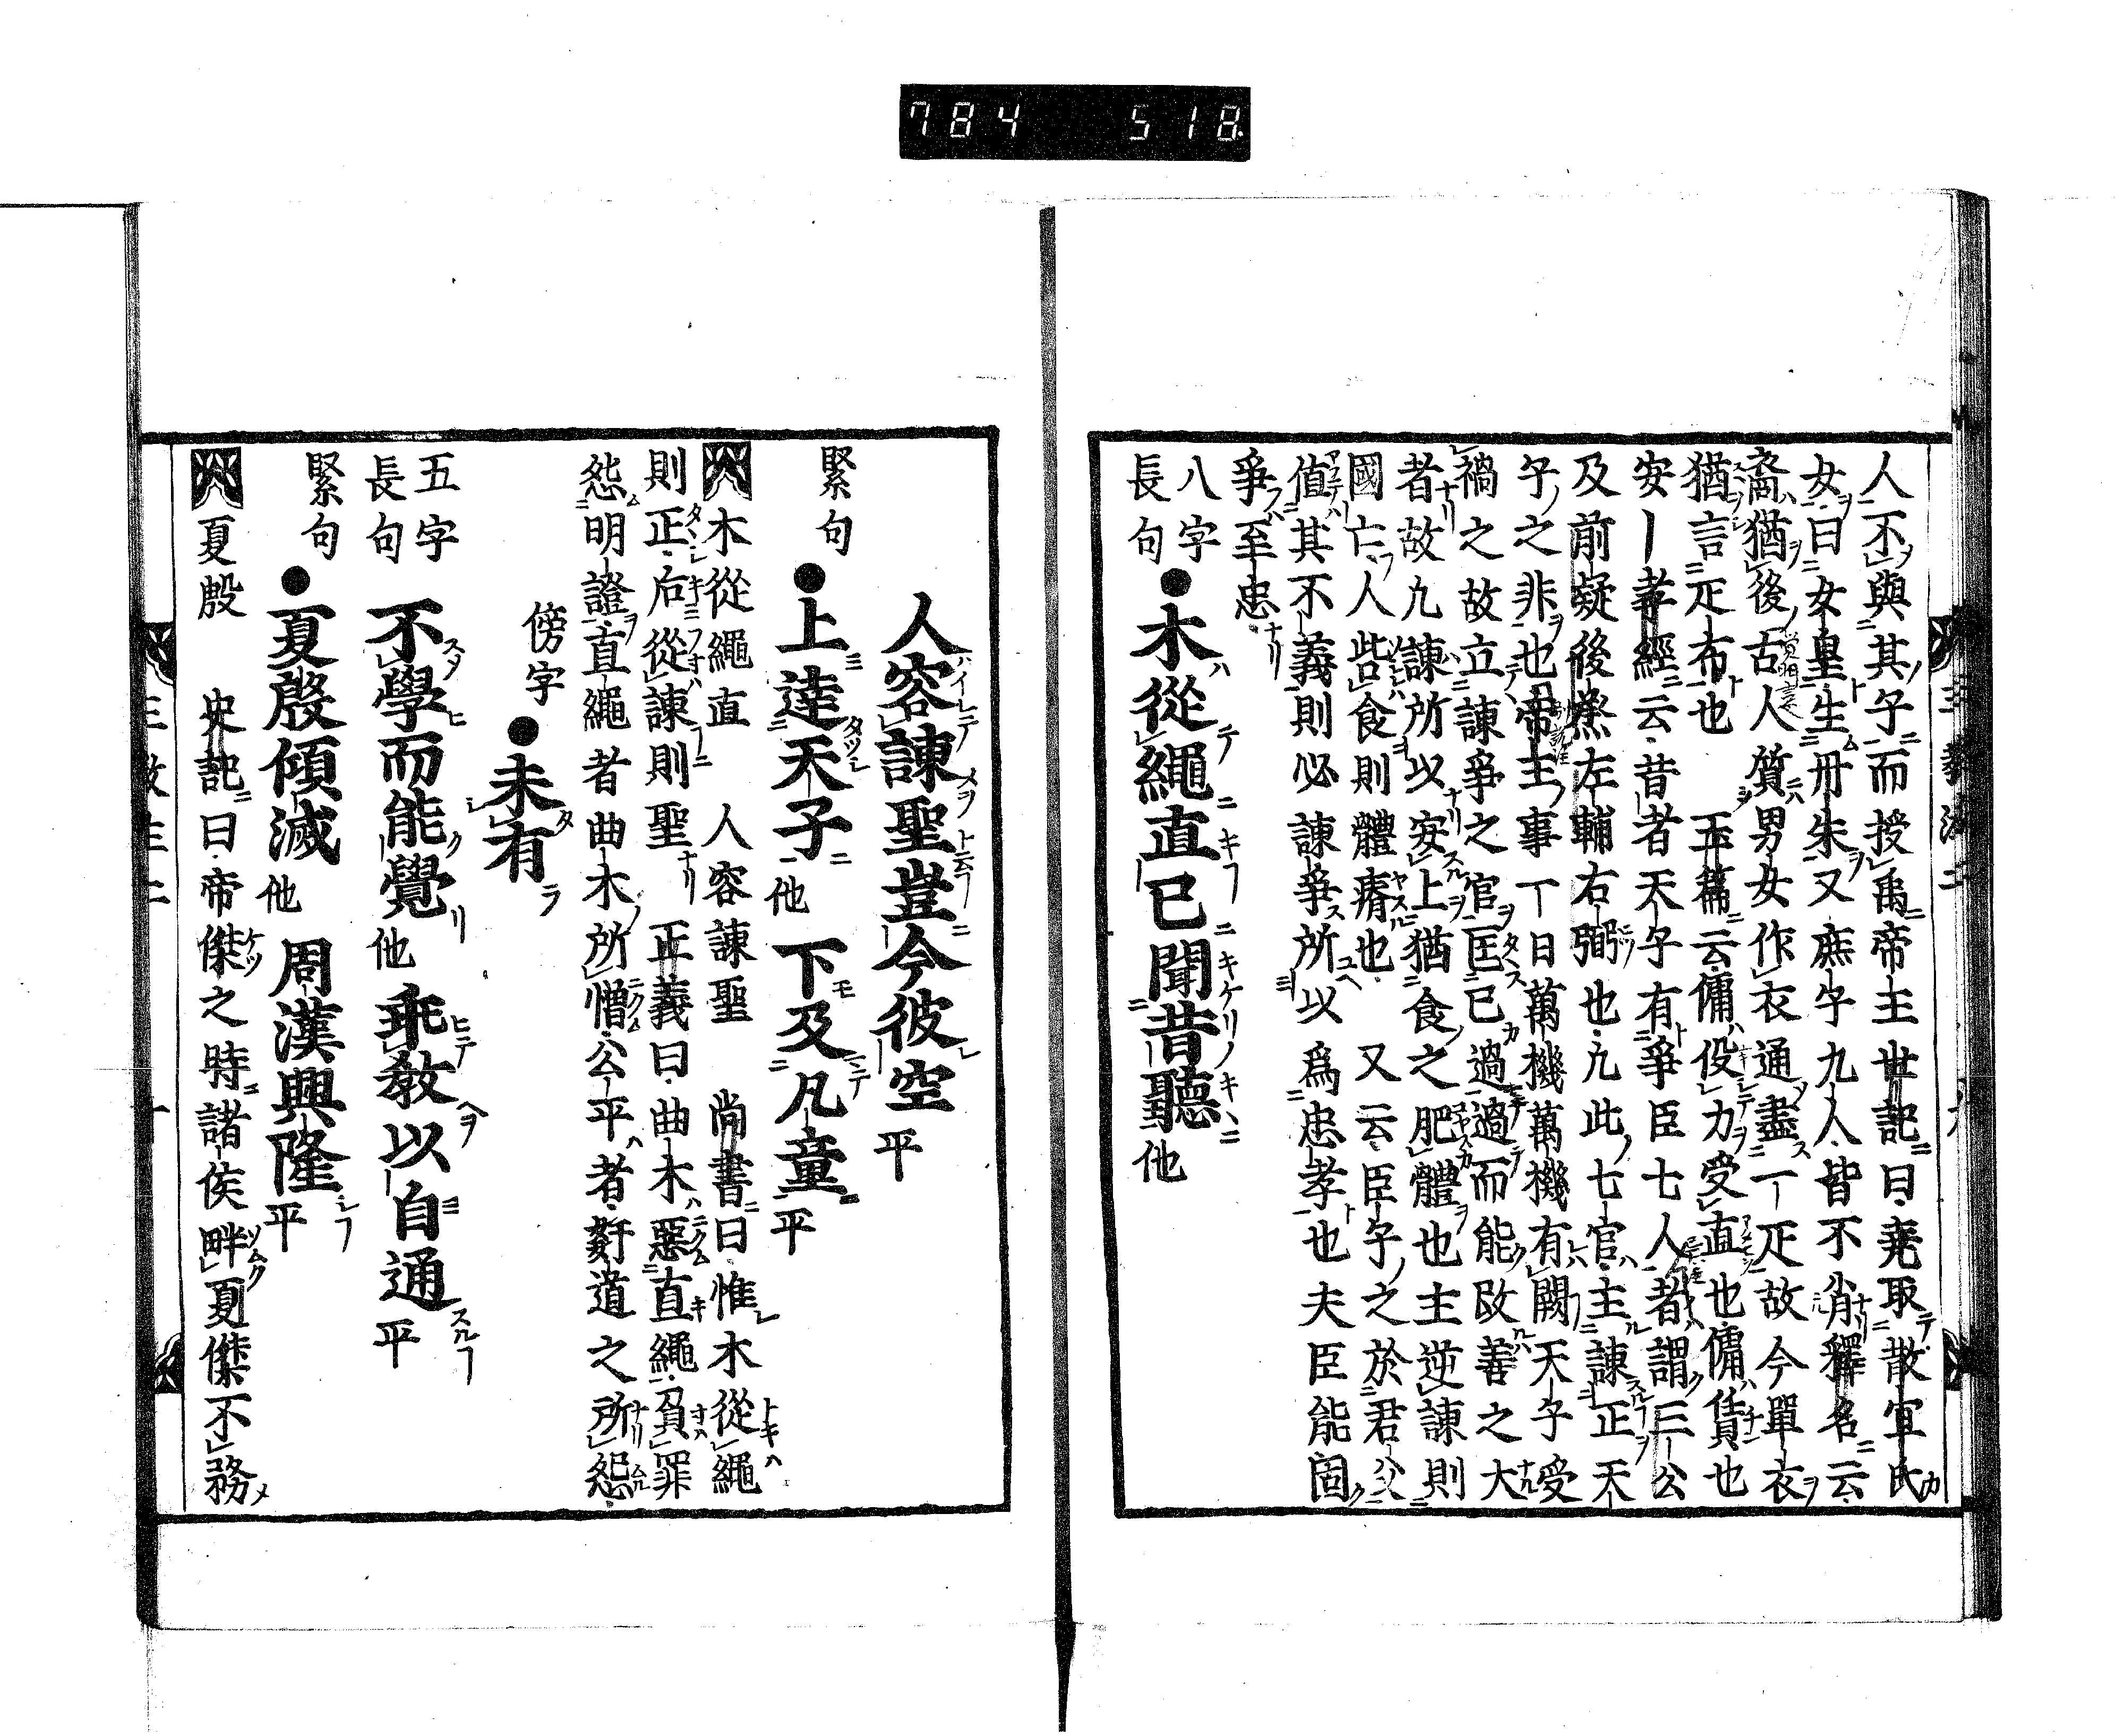 784 518
人不與其子而授禹帝王世記曰堯取散宜氏
女曰女皇生丹朱又庶子九人皆不肖釋名云
裔猶後古人質男女作衣通盡一疋故今單衣
猶言疋布也 玉篇云傭役力受直也傭賃也
安｜孝經云昔者天子有爭臣七人者謂三公
及前疑後烝左輔右弼也凢此七官主諫正天
子之非也帝王事一日萬機萬機有闕天子受
禍之故立諫爭之官匡已過過而能改善之大
者故九諫所以安上猶食之肥體也主逆諫則
國亡人呰食則體瘠也 又云臣子之於君父
值其不義則必諫爭所以爲忠孝也夫臣能固
爭至忠
八字
長句
●木從繩直已聞昔聽 他
人容諫聖豈今彼空 平
緊句
●上達天子 他 下及凡童 平
木從繩直 人容諫聖 尚書曰惟木從繩
則正后從諫則聖 正義曰曲木惡直繩負罪
怨明證直繩者曲木所憎公平者姧道之所怨
傍字
●未有
五字
長句
不學而能覺 他 乖教以自通 平
緊句
●夏殷傾滅 他 周漢興隆 平
夏殷 史記曰帝傑之時諸侯畔夏傑不務